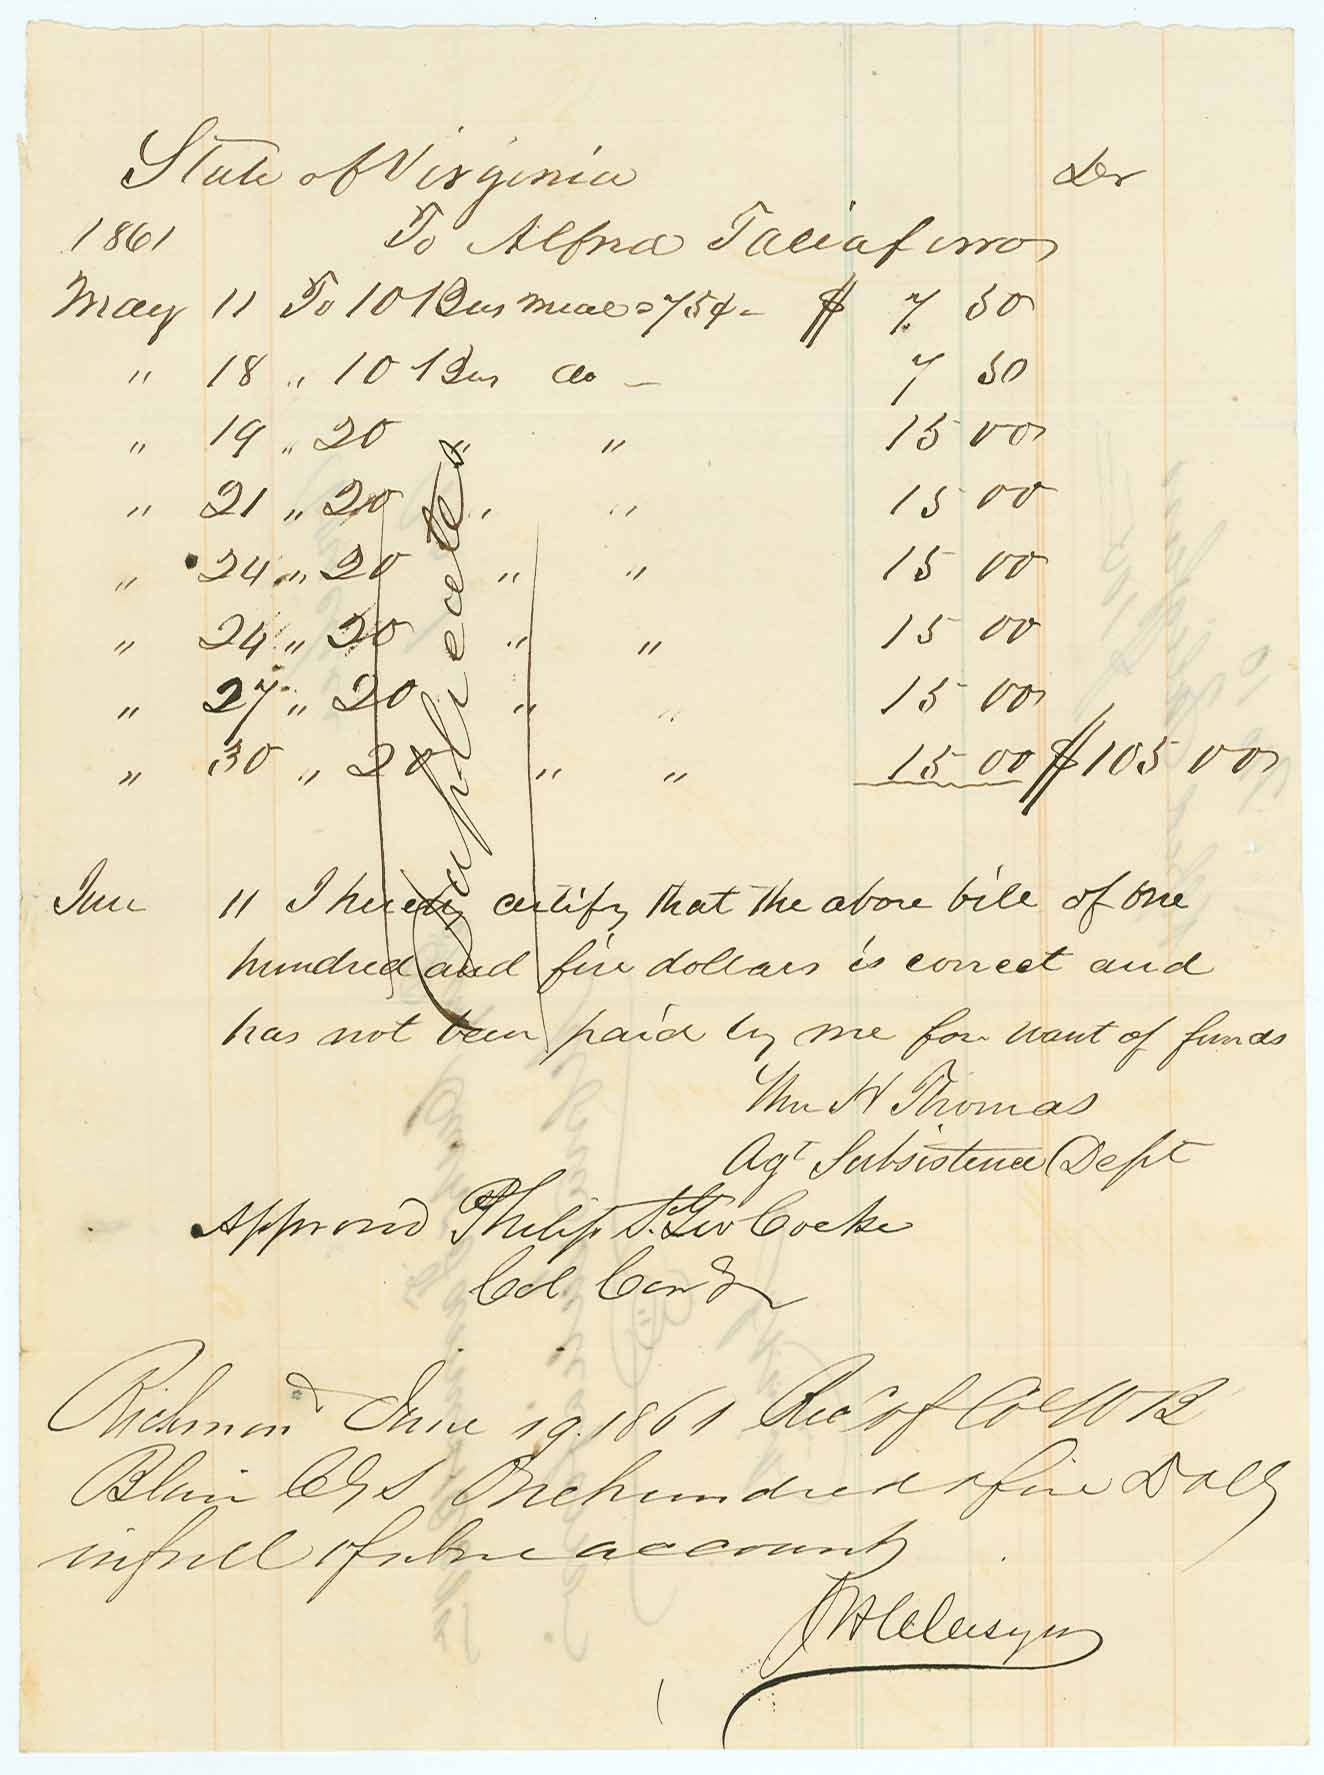 State of Virginia Dr
1861 To Alfred Taliaferro
May 11 To 10 Bus meal = 75¢ - $ 7 50
" 18 " 10 Bus do - 7 50
" 19 " 20 " " 15 00
" 21 " 20 " " 15 00
" 24 " 20 " " 15 00
" 24 " 20 " " 15 00
" 27 " 20 " " 15 00
" 30 " 20 " " 15 00 $105 00
Duplicate
June 11 I hereby certify that the above bill of one
hundred and five dollars is correct and
has not been paid by me for want of funds
Wm H Thomas
Agt Subsistence Dept
Approved Philip St. Geo Cocke
Col. Comdg
Richmond June 19. 1861 Recd of Col W B
Blair CGS One hundred & five Dolls
in full of above account